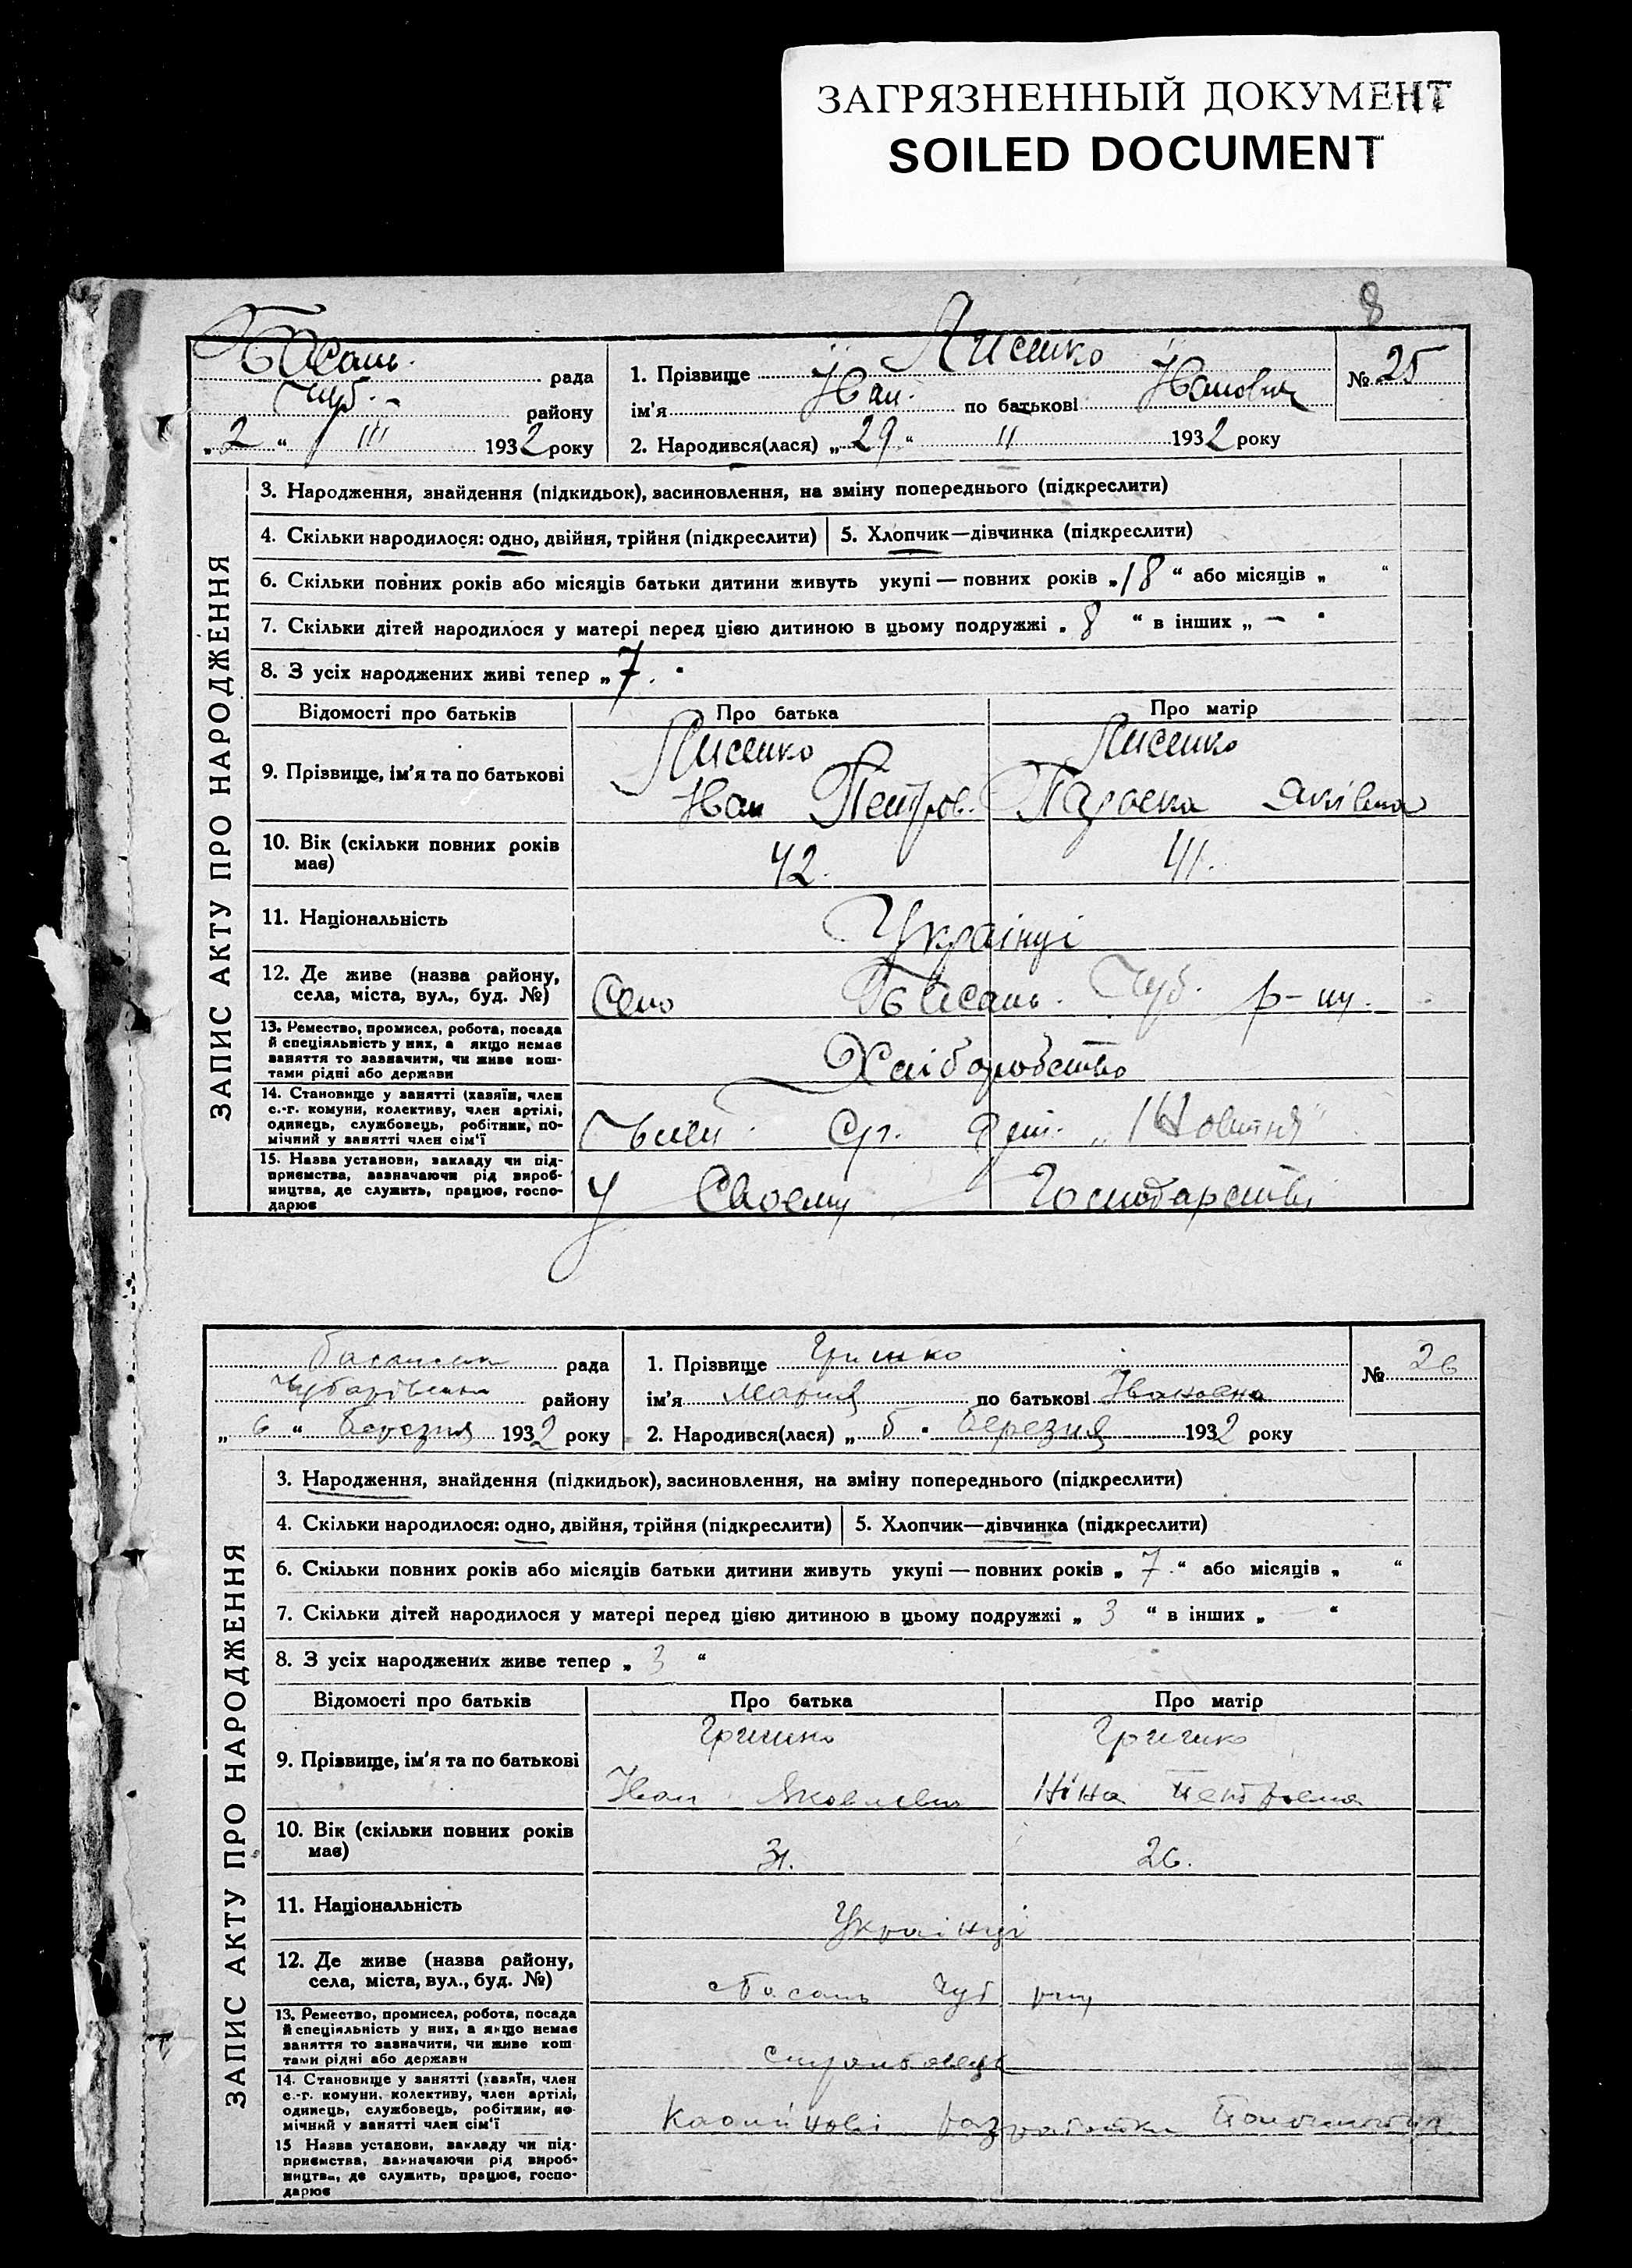 ЗАГРЯЗНЕННЫЙ ДОКУМЕНТ
SOILED DOCUMENT
8
Басань рада
Чуб. району
„2“ III 1932 року
1. Прізвище Лисенко
ім'я Иван по батькові Иванович
2. Народився(лася) „29“ II 1932 року
№ 25
ЗАПИС АКТУ ПРО НАРОДЖЕННЯ
3. Народження, знайдення (підкидьок), засиновлення, на зміну попереднього (підкреслити)
4. Скільки народилося: одно, двійня, трійня (підкреслити) 5. Хлопчик—дівчинка (підкреслити)
6. Скільки повних років або місяців батьки дитини живуть укупі — повних років „18“ або місяців „ “
7. Скільки дітей народилося у матері перед цією дитиною в цьому подружжі „8“ в інших „ — “
8. З усіх народжених живі тепер „7“
Відомості про батьків Про батька Про матір
9. Прізвище, ім'я та по батькові
Лисенко Лисенко
Иван Петров. Параска Яківна
10. Вік (скільки повних років має) 42. 41.
11. Національність Українці
12. Де живе (назва району,
села, міста, вул., буд. №) Село Басань Чуб. р-ну.
13. Ремество, промисел, робота, посада
й спеціяльність у них, а якщо немає
заняття то зазначити, чи живе кош-
тами рідні або держави
Хліборобство
14. Становище у занятті (хазяїн, член
с.-г. комуни, колективу, член артілі,
одинець, службовець, робітник, по-
мічний у занятті член сім'ї
15. Назва установи, закладу чи під-
приємства, зазначаючи рід вироб-
ництва, де служить, працює, госпо-
дарює
У Своєму Господарстві
рада
Чубарівськи району
„6“ березня 1932 року
1. Прізвище Гришко
ім'я Мария по батькові Ивановна
2. Народився(лася) „5“ березня 1932 року
№ 26
ЗАПИС АКТУ ПРО НАРОДЖЕННЯ
3. Народження, знайдення (підкидьок), засиновлення, на зміну попереднього (підкреслити)
4. Скільки народилося: одно, двійня, трійня (підкреслити) 5. Хлопчик—дівчинка (підкреслити)
6. Скільки повних років або місяців батьки дитини живуть укупі — повних років „7“ або місяців „ “
7. Скільки дітей народилося у матері перед цією дитиною в цьому подружжі „3“ в інших „ — “
8. З усіх народжених живе тепер „3“
Відомості про батьків Про батька Про матір
9. Прізвище, ім'я та по батькові
Гришко Гришко
Иван Яковлевич Ніна Петровна
10. Вік (скільки повних років має) 31. 26.
11. Національність Українці
12. Де живе (назва району,
села, міста, вул., буд. №) с Басань Чуб рну
13. Ремество, промисел, робота, посада
й спеціяльність у них, а якщо немає
заняття то зазначити, чи живе кош-
тами рідні або держави
14. Становище у занятті (хазяїн, член
с.-г. комуни, колективу, член артілі,
одинець, службовець, робітник, по-
мічний у занятті член сім'ї
15 Назва установи, закладу чи під-
приємства, зазначаючи рід вироб-
ництва, де служить, працює, госпо-
дарює